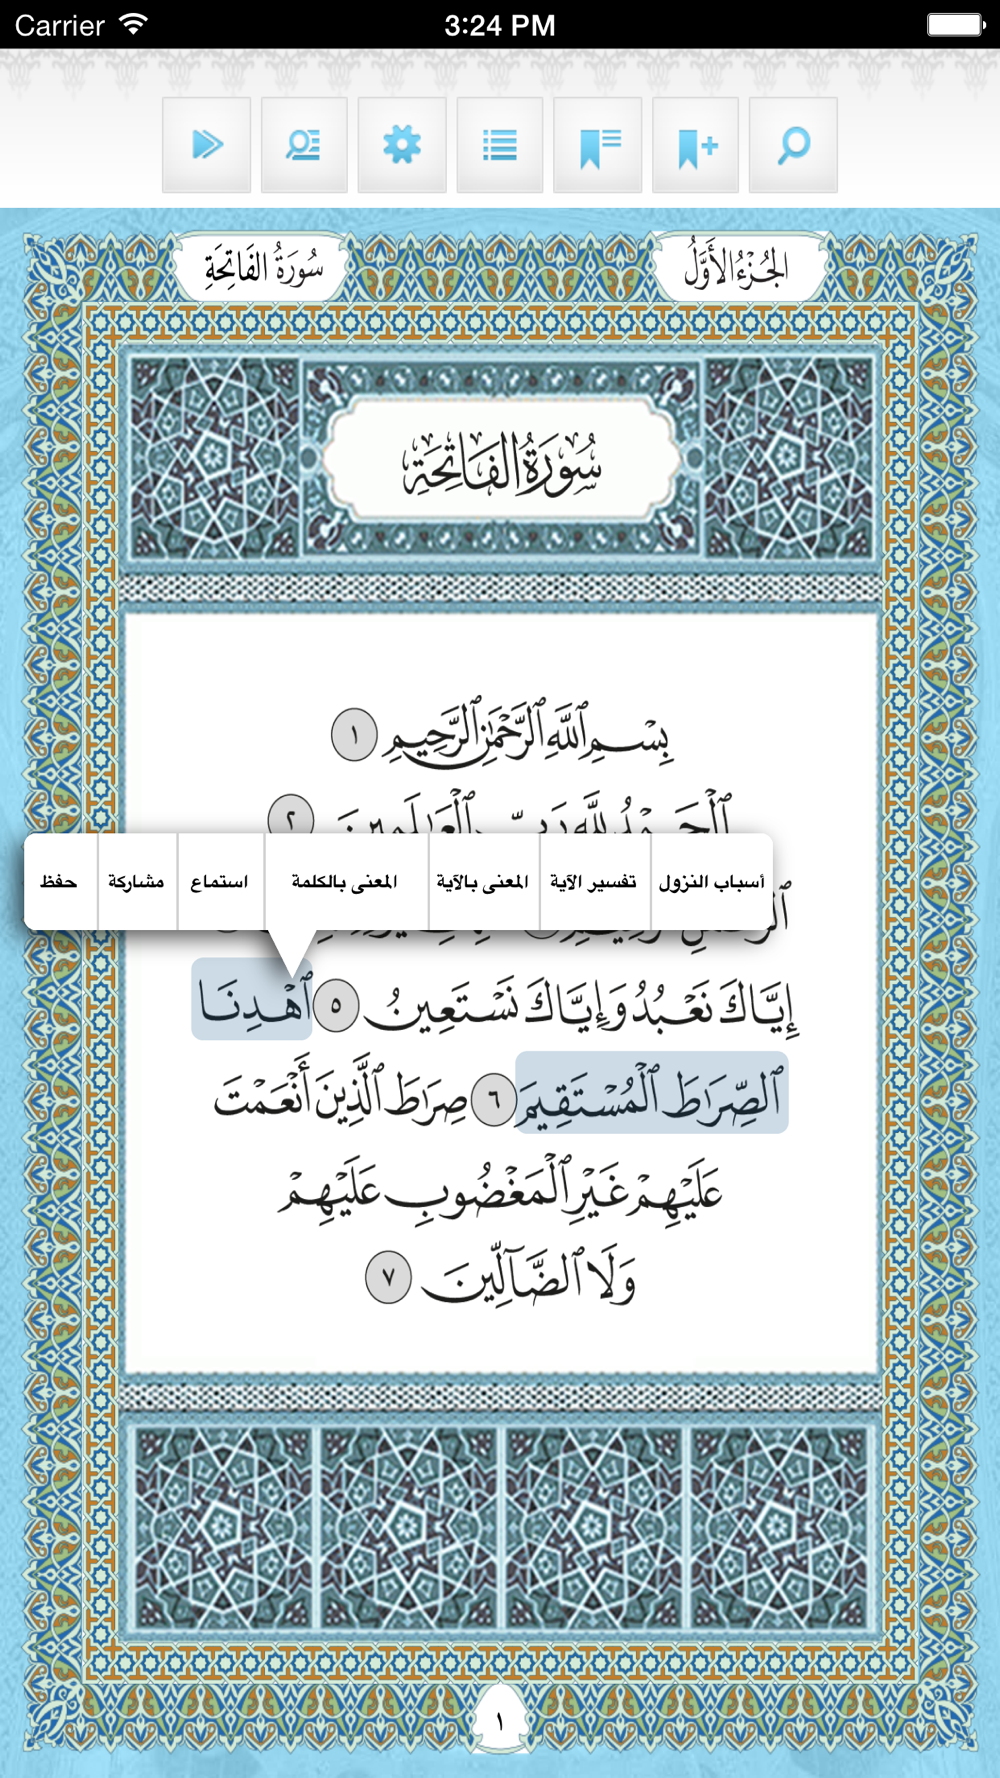 Carrier 3:24 PM
الجُزْءُ الأَوَّلُ
سُورَةُ الفَاتِحَةِ
سُورَةُ الفَاتِحَةِ
بِسْمِ ٱللَّهِ ٱلرَّحْمَٰنِ ٱلرَّحِيمِ ١
ٱلْحَمْدُ لِلَّهِ رَبِّ ٱلْعَٰلَمِينَ ٢
أسباب النزول تفسير الآية المعنى بالآية المعنى بالكلمة استماع مشاركة حفظ
إِيَّاكَ نَعْبُدُ وَإِيَّاكَ نَسْتَعِينُ ٥ ٱهْدِنَا
ٱلصِّرَٰطَ ٱلْمُسْتَقِيمَ ٦ صِرَٰطَ ٱلَّذِينَ أَنْعَمْتَ
عَلَيْهِمْ غَيْرِ ٱلْمَغْضُوبِ عَلَيْهِمْ
وَلَا ٱلضَّآلِّينَ ٧
١